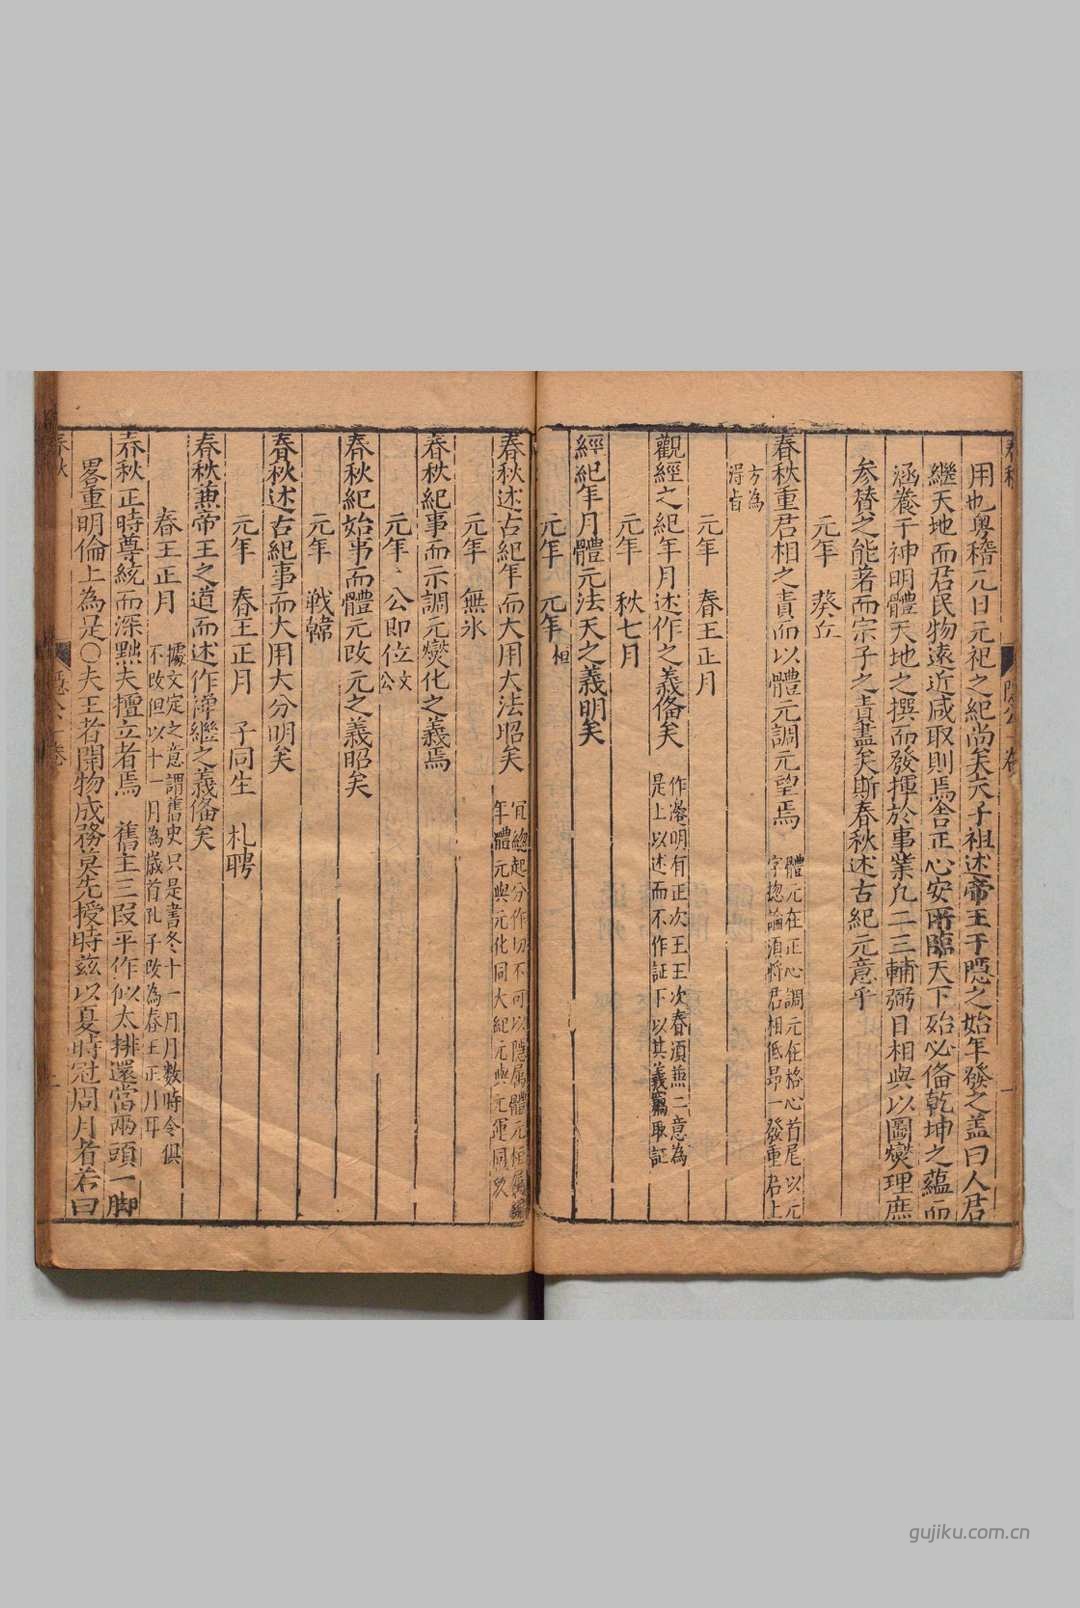 用也粵稽元日元祀之紀尚矣天子祖述帝王于隱之始年發之蓋曰人君
繼天地而君民物遠近咸取則焉舍正心安所臨天下殆必備乾坤之蘊而
涵養于神明體天地之撰而發揮於事業凡二三輔弼目相與以圖爕理庶
参賛之能著而宗子之責盡矣斯春秋述古紀元意乎
元年 葵丘
春秋重君相之責而以體元調元望焉 體元在正心調元在格心首尾以元
字揔論須將君相低昂一發重君上
方為
得旨
元年 春王正月
觀經之紀年月述作之義備矣 作滲明有正次王王次春須無二意為
是上以述而不作証下以其義竊取証
元年 秋七月
經紀年月體元法天之義明矣
元年 元年 桓
春秋述古紀年而大用大法昭矣 宜總起分作切不可以隱属體元桓属
年體元與元化同大紀元與元運同久
元年 無氷
春秋紀事而示調元爕化之義焉
元年 公即位 文公
春秋紀始事而體元改元之義昭矣
元年 戦韓
春秋述古紀事而大用大分明矣
元年 春王正月 子同生 札聘
春秋兼帝王之道而述作津繼之義備矣
春王正月 據文定之意謂舊史只是書冬十一月月数時令俱
不改但以十一月為歲首孔子改為春王正月耳
春秋正時尊統而深黜夫擅立者焉 舊主三段平作似太排還當兩頭一脚
畧重明倫上為是〇夫王者開物成務莫先授時茲以夏時冠周月者若曰
春秋
gujiku.com.cn